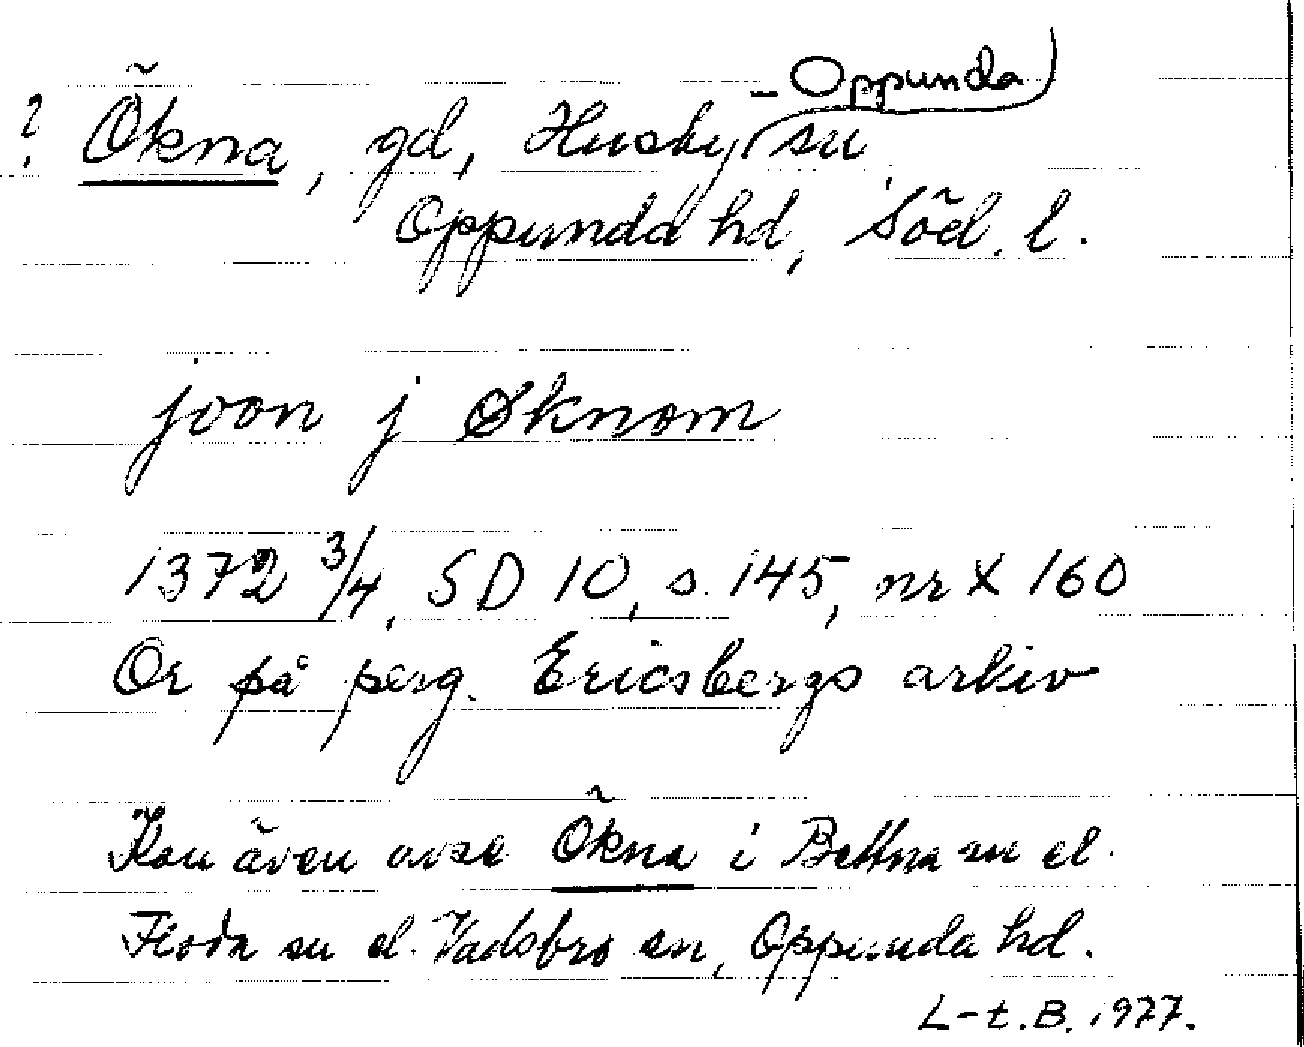 ? Ökna, gd, Husby-Oppunda sn
Oppunda hd, Söd. l.
joon j Øknom
1372 3/4, SD 10, s. 145, nr X 160
Or på perg. Ericsbergs arkiv
Kan även avse Ökna i Bettna sn el.
Floda sn el. Vadsbro sn, Oppunda hd.
L-t. B. 1977.